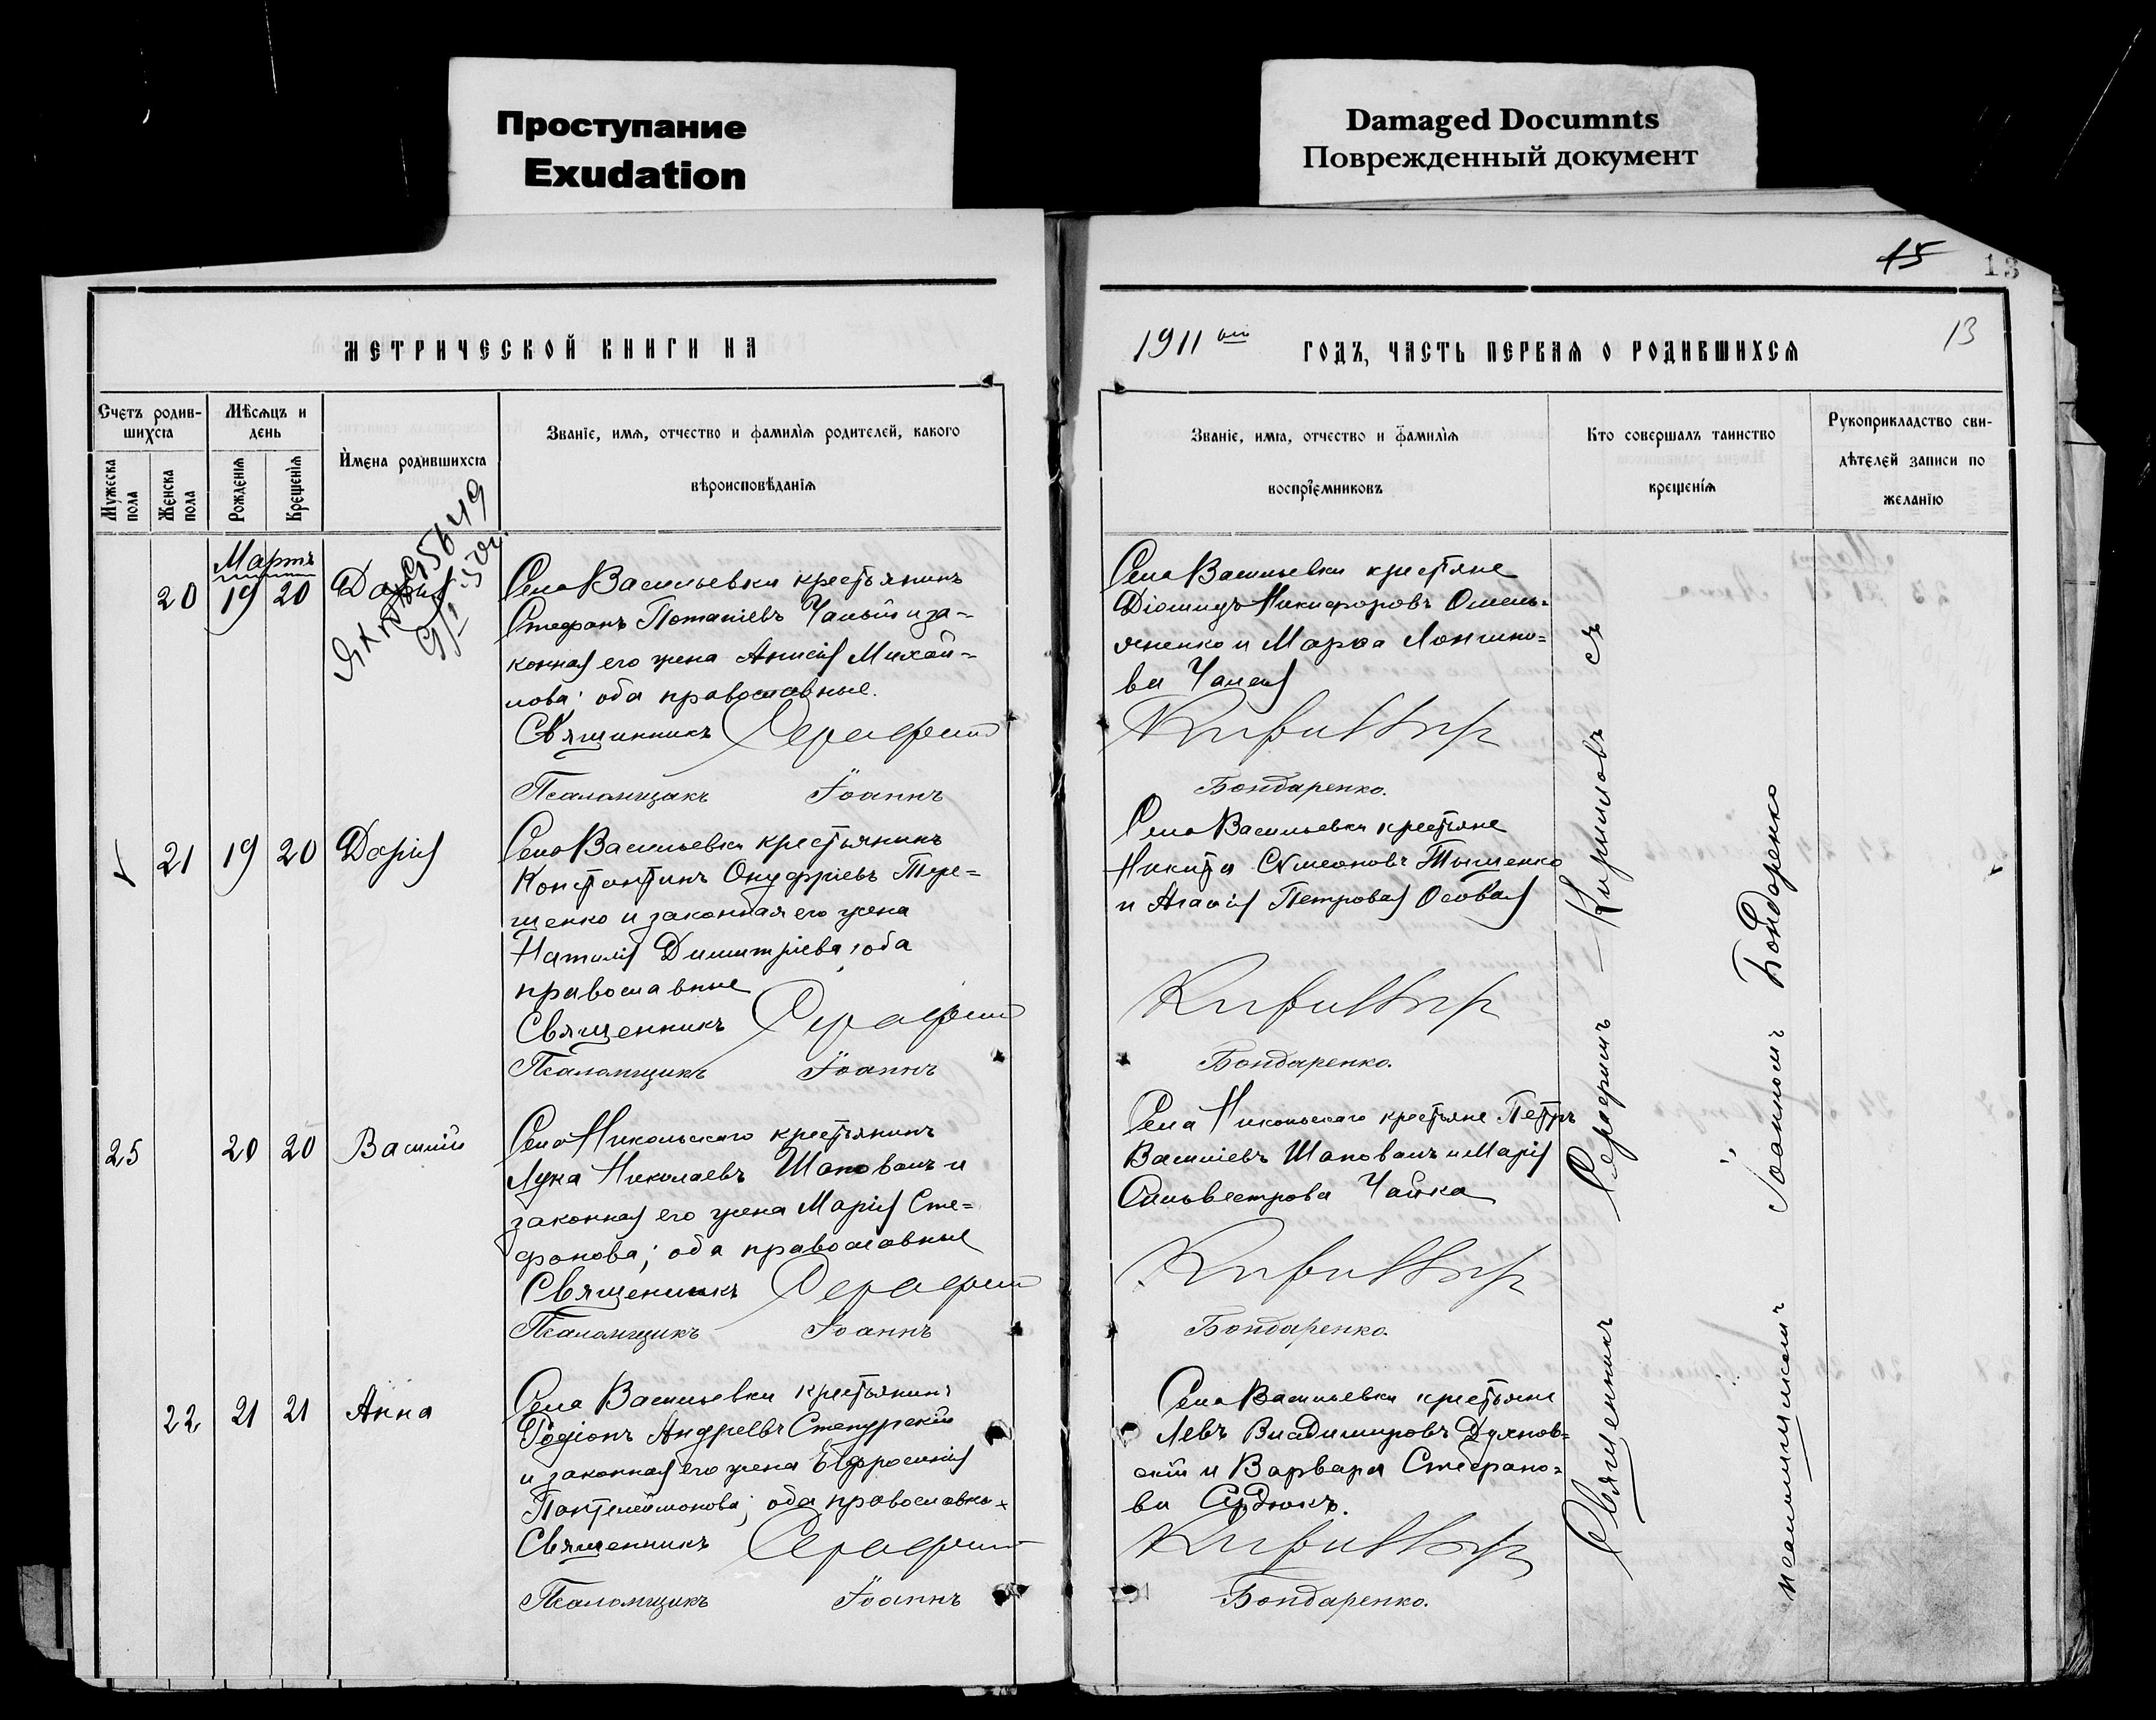 Проступание
Exudation
Damaged Documnts
Поврежденный документ
15
13
МЕТРИЧЕСКОЙ КНИГИ НА
1911 ый
ГОДЪ, ЧАСТЬ ПЕРВАЯ О РОДИВШИХСЯ
13
Счетъ родив-
шихся
Мужеска
пола
Женска
пола
Мѣсяцъ и
день
Рожденія
Крещенія
Имена родившихся
Званіе, имя, отчество и фамилія родителей, какого
вѣроисповѣданія
Званіе, имя, отчество и фамилія
воспріемниковъ
Кто совершалъ таинство
крещенія
Рукоприкладство сви-
дѣтелей записи по
желанію
Мартъ
20 19 20 Дарія
Села Васильевки крестьянинъ
Стефанъ Потапіевъ Чалый и за-
конная его жена Анисія Михай-
лова; оба православные.
Священникъ Серафим
Псаломщикъ Іоаннъ
Села Васильевки крестьяне
Діомидъ Никифоровъ Омель-
яненко и Марѳа Лонгино-
ва Чалая
Бондаренко.
21 19 20 Дарія
Село Васильевки крестьянинъ
Константинъ Онуфріевъ Тере-
щенко и законная его жена
Наталія Димитріева; оба
православные
Священникъ Серафим
Псаломщикъ Іоаннъ
Села Васильевки крестьяне
Никита Сѵмеоновъ Тышенко
и Агаѳія Петровая Осовая
Бондаренко.
25 20 20 Василій
Села Никольскаго крестьянинъ
Лука Николаевъ Шаповалъ и
законная его жена Марія Сте-
фанова; оба православные
Священникъ Серафим
Псаломщикъ Іоаннъ
Села Никольскаго крестьяне Петръ
Василіевъ Шаповалъ и Марія
Сильвестрова Чайка
Бондаренко.
22 21 21 Анна
Села Васильевки крестьянинъ
Родіонъ Андреевъ Степурскій
и законная его жена Евфросинія
Пантелеймонова; оба православны
Священникъ Серафим
Псаломщикъ Іоаннъ
Села Васильевки крестьяне
Левъ Владимировъ Духнов-
скій и Варвара Стефано-
ва Сердюкъ.
Бондаренко.
Священникъ Серафимъ Кирилловъ съ
псаломщикомъ Іоанномъ Бондаренко